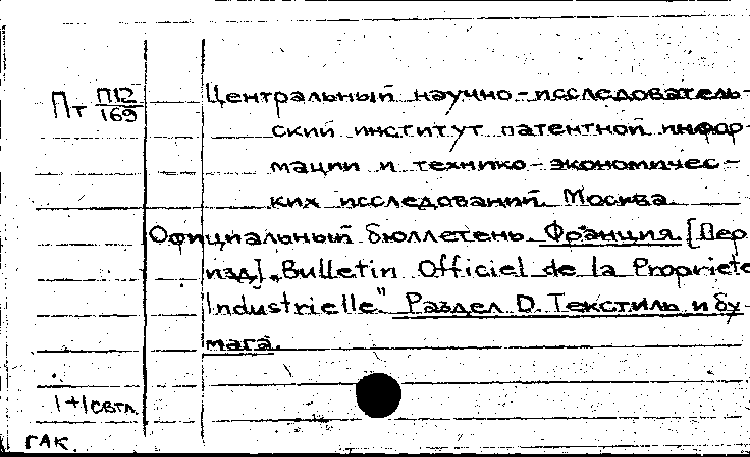 Пт П12/169
Центральный научно-исследователь-
ский институт патентной инфор-
мации и технико-экономичес-
ких исследований. Москва.
Официальный бюллетень. Франция. [Пер
изд.] „Bulletin Officiel de la Propriete
Industrielle" Раздел D. Текстиль и бу-
мага.
1+1свтл.
ГАК.